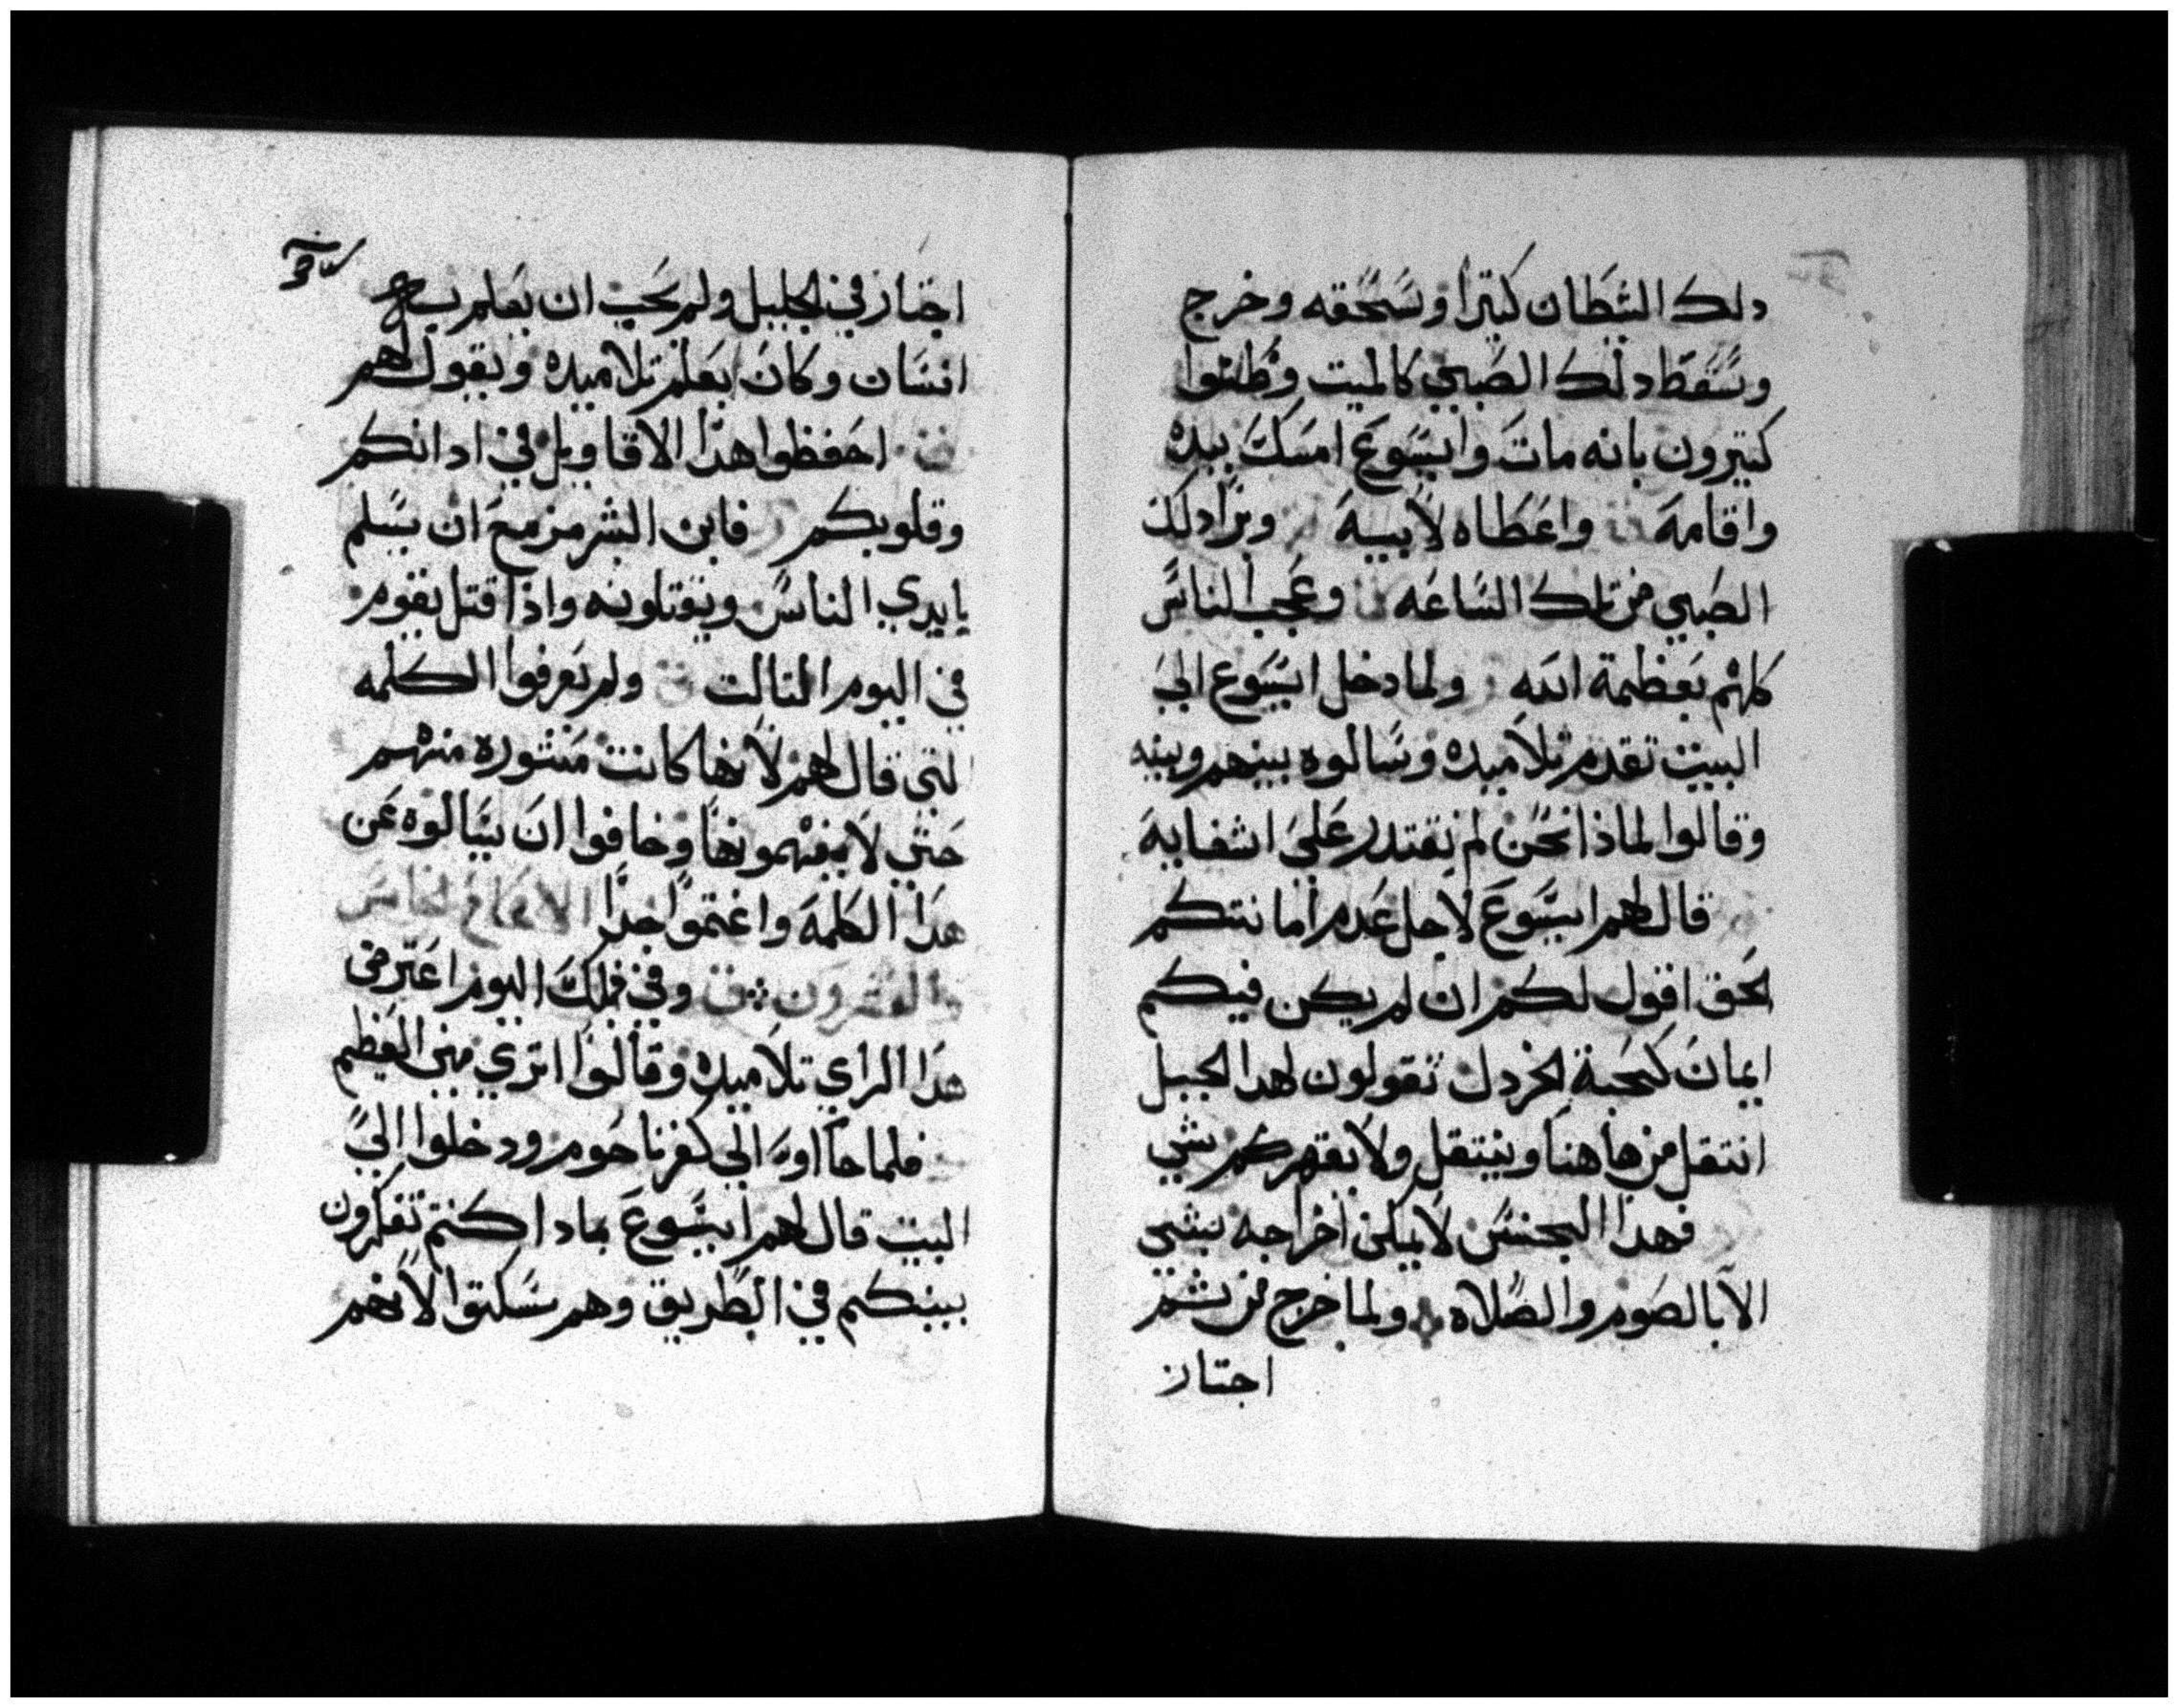 دلك الشطان كتيرا وسحقه وخرج
وسقط دلك الصبي كالميت وظنوا
كتيرون بانه مات وايسوع امسك بيده
واقامه واعطاه لابيه وبرا دلك
الصبي من تلك الساعه وعجب الناس
كلهم بعظمة الله ولما دخل ايسوع الى
البيت تقدم تلاميده وسالوه بينهم وبينه
وقالوا لماذا نحن لم نقتدر على اشفايه
قال لهم ايسوع لاجل عدم امانتكم
الحق اقول لكم ان لم يكن فيكم
ايمان كحبة الخردل تقولون لهدا الجبل
انتقل من هاهنا وينتقل ولا يقهركم شي
فهدا الجنس لا يمكن اخراجه بشي
الا بالصوم والصلاه ولما خرج من ثم
اجتاز
اجتاز في الجليل ولم يحب ان يعلم به
انسان وكان يعلم تلاميده ويقول لهم
احفظوا هدا الاقاويل في ادانكم
وقلوبكم فابن البشر مزمع ان يسلم
بايدي الناس ويقتلونه واذا قتل يقوم
في اليوم التالت ولم يعرفوا الكلمه
التي قال لهم لانها كانت مستوره منهم
حتى لا يفهمونها وخافوا ان يسالوه عن
هدا الكلمة واغتموا جدا الاصحاح الخامس
والعشرون وفي فلك اليوم اعترض
هدا الراي تلاميده وقالوا اترى من العظيم
فلما جااوه الى كفرناحوم ودخلوا الى
البيت قال لهم ايسوع بمادا كنتم تفكرون
بينكم في الطريق وهم سكتوا لانهم